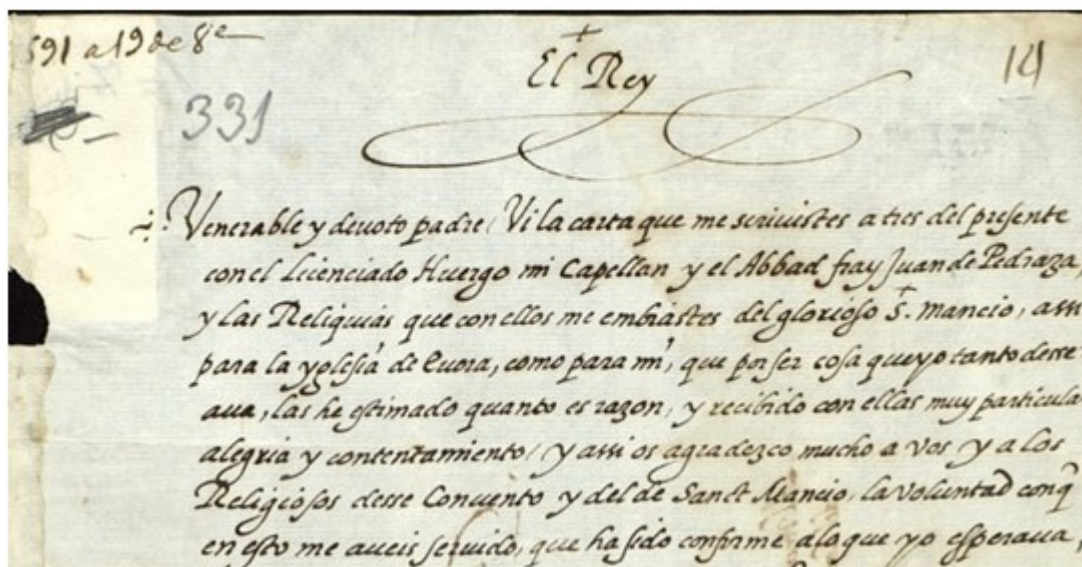 591 a 19 de 8e
El Rey
14
331
Venerable y deuoto padre / Vi la carta que me scriuistes a tres del presente
con el Licenciado Huergo mi Capellan y el Abbad fray Juan de Pedraza,
y las Reliquias que con ellos me embiastes del glorioso S. Mancio, assi
para la yglesia de Euora, como para mi, que por ser cosa que yo tanto desse
aua, las he estimado quanto es razon, y recibido con ellas muy particula
alegria y contentamiento / y assi os agradezco mucho a vos y a los
Religiosos desse Conuento y del de Sanct Mancio, la voluntad conq̃
en esto me aueis seruido, que ha sido conforme a lo que yo esperaua,